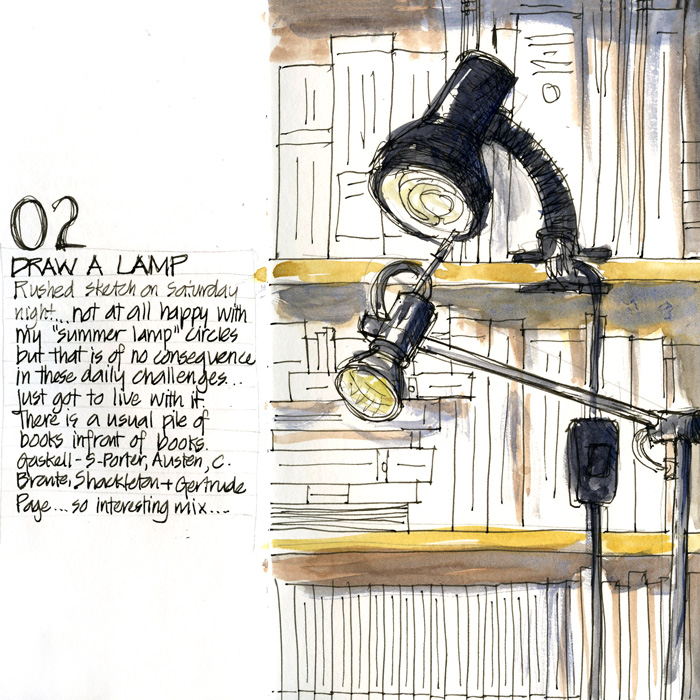 02
DRAW A LAMP
Rushed sketch on Saturday
night... not at all happy with
my "summer lamp" circles
but that is of no consequence
in these daily challenges...
Just got to live with it.
There is a usual pile of
books infront of books.
Gaskell - S-Porter, Austen, C.
Bronte, Shackleton + Gertrude
Page... so interesting mix...